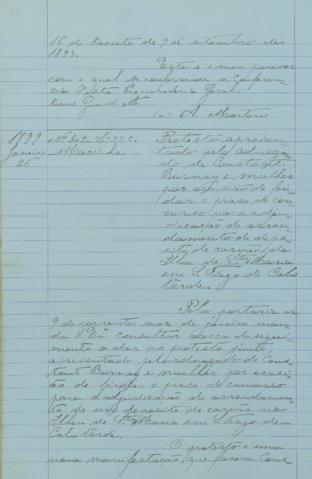 16 do Decreto de 9 de setembro de
1893.
Este é o meu parecer
com o qual se conformou a Conferen-
cia desta Procuradoria Geral.
Deus Guarde etc
(a) A. Martins
1899
Janeiro
26
Marinha
Protesto apresen-
tado pelo advoga-
do de Constant
Burnay e mulher
por occasião de fin-
dar o praso do con-
curso para adju-
dicação do arren-
damento do depo-
sito de carvão no
Ilheu de Sta Maria
em S. Tiago de Cabo
Verde.
Pela portaria de
9 do corrente mez de janeiro man-
da V. Exa consultar ácerca do segui-
mento a dar ao protesto junto
apresentado pelo advogado de Cons-
tant Burnay e mulher por occasi-
ão de findar o praso do concurso
para adjudicação do arrendamen-
to de um deposito de carvão no
Ilheu de Sta Maria em S. Tiago de
Cabo Verde.
O protesto é uma
nova manifestação que fazem Cons